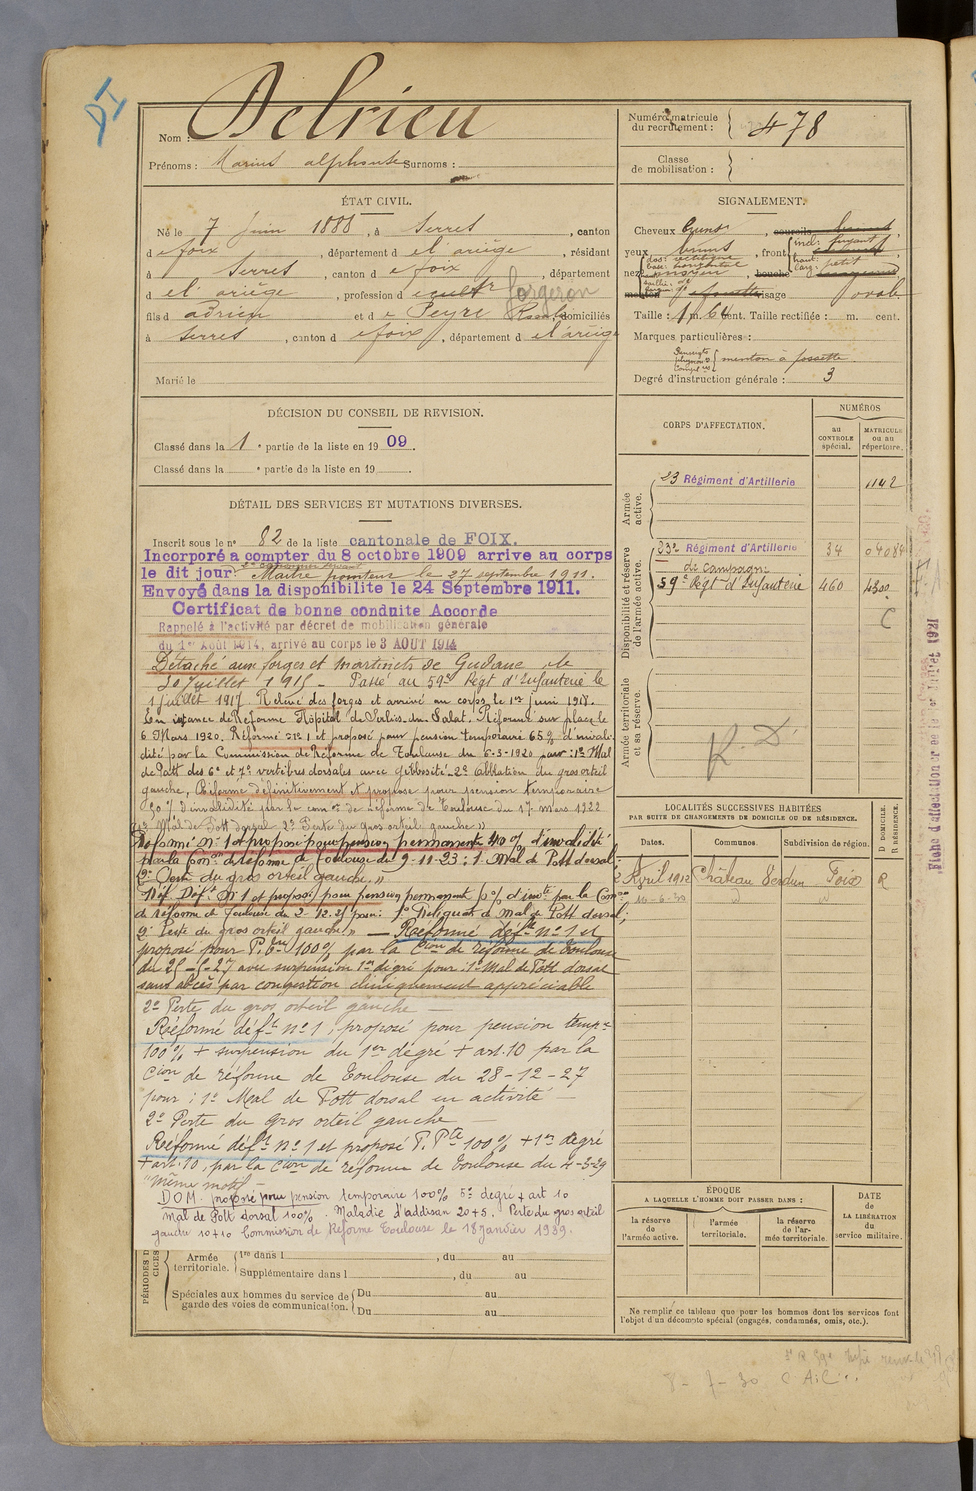 DI
Nom : Delrieu
Prénoms : Marius alphonse Surnoms :
Numéro matricule
du recrutement : 478
Classe
de mobilisation :
ÉTAT CIVIL.
Né le 7 juin 1888, à Serres, canton
d e foix, département d e l'ariège, résidant
à Serres, canton d e foix, département
d el' ariège, profession d e cultr forgeron
fils d adrien et d e Peyre Rose, domiciliés
à Serres, canton d e foix, département d el'ariège
Marié le
SIGNALEMENT.
Cheveux bruns, sourcils
yeux bruns, front incl: fuyant
haut:
larg: petit
nez dos: rectiligne
base: horizontale
moyen, bouche
menton à fossette visage ovale
Taille : 1 m. 66 cent. Taille rectifiée : m. cent.
Marques particulières :
menton à fossette
Degré d'instruction générale : 3
DÉCISION DU CONSEIL DE REVISION.
Classé dans la 1e partie de la liste en 1909.
Classé dans la e partie de la liste en 19
CORPS D'AFFECTATION.
NUMÉROS
au
CONTROLE
spécial.
MATRICULE
ou au
répertoire.
Armée
active.
23 Régiment d'Artillerie 1142
Disponibilité et réserve
de l'armée active.
23e Régiment d'Artillerie 34 04084
de campagne
59e Regt d'Infanterie 460 4300
C
Armée territoriale
et sa réserve.
R. D.
DÉTAIL DES SERVICES ET MUTATIONS DIVERSES.
Inscrit sous le n° 82 de la liste cantonale de FOIX.
Incorporé a compter du 8 octobre 1909 arrive au corps
le dit jour. 2e canonnier servant
Maitre pointeur le 27 septembre 1911.
Envoyé dans la disponibilite le 24 Septembre 1911.
Certificat de bonne conduite Accorde
Rappelé à l'activité par décret de mobilisation générale
du 1er Août 1914, arrivé au corps le 3 AOUT 1914
Détaché aux forges et martinets de Gudane le
20 Juillet 1915 - Passé au 59e Regt d'Infanterie le
1 juillet 1917 Relevé des forges et arrivé au corps le 1er juin 1918.
En instance de Réforme Hôpital de Salies du Salat. Réformé sur place le
6 Mars 1920. Réformé n° 1 et proposé pour pension temporaire 65 % d'invali-
dité par la Commission de Réforme de Toulouse du 6-3-1920 pour : 1° Mal
de Pott des 6e et 7e vertèbres dorsales avec gibbosité 2° Ablation du gros orteil
gauche, Réformé définitivement et proposé pour pension temporaire
d'invalidité par la comon de réforme de Toulouse du 17 mars 1922
1° Mal de Pott dorsal 2° Perte du gros orteil gauche »
Réformé n° 1 et proposé pour pension permanente 40 % d'invalidité
par la Comon de réforme de Toulouse du 9-11-23 : 1° Mal de Pott dorsal
2° Perte du gros orteil gauche »
Réf. Déft n° 1 et proposé pour pension permanent % d'invté par la Comon
de réforme de Toulouse du 2-12-25 pour: 1° Reliquat de mal de Pott dorsal;
2° Perte du gros orteil gauche » — Réformé déft n° 1 et
proposé pour P. tre 100 % par la Cion de réforme de Toulouse
du 25-5-27 avec suspension 1er degré pour : 1° Mal de Pott dorsal
sans abcès par congestion cliniquement appréciable
2° Perte du gros orteil gauche —
Réformé déft n° 1, proposé pour pension tempre
100 % + surpension du 1er degré + art. 10 par la
Cion de réforme de Toulouse du 28-12-27
pour : 1° Mal de Pott dorsal en activité —
2° Perte du gros orteil gauche
Réformé déft n° 1 et proposé P. Pte 100 % + 1er degré
+ art. 10, par la Cion de réforme de Toulouse du 4-3-29
"même motif —
DOM. proposé pour pension temporaire 100% 5e degré + art 10
mal de Pott dorsal 100% . Maladie d'addisan 20+5. Perte du gros orteil
gauche 10+10 Commission de Réforme Toulouse le 18 janvier 1939.
LOCALITÉS SUCCESSIVES HABITÉES
PAR SUITE DE CHANGEMENTS DE DOMICILE OU DE RÉSIDENCE.
Dates. Communes. Subdivision de région. D DOMICILE. R RÉSIDENCE.
2 Avril 1912 Château Verdun Foix R
16-6-30
ÉPOQUE
A LAQUELLE L'HOMME DOIT PASSER DANS :
la réserve
de l'armée active.
l'armée
territoriale.
la réserve
de l'ar-
mée territoriale.
DATE
DE
LA LIBÉRATION
du
service militaire.
Ne remplir ce tableau que pour les hommes dont les services font
l'objet d'un décompte spécial (engagés, condamnés, omis, etc.).
Armée
territoriale.
1re dans l , du au
Supplémentaire dans l , du au
Spéciales aux hommes du service de
garde des voies de communication.
Du au
Du au
8-7-30 C A.C